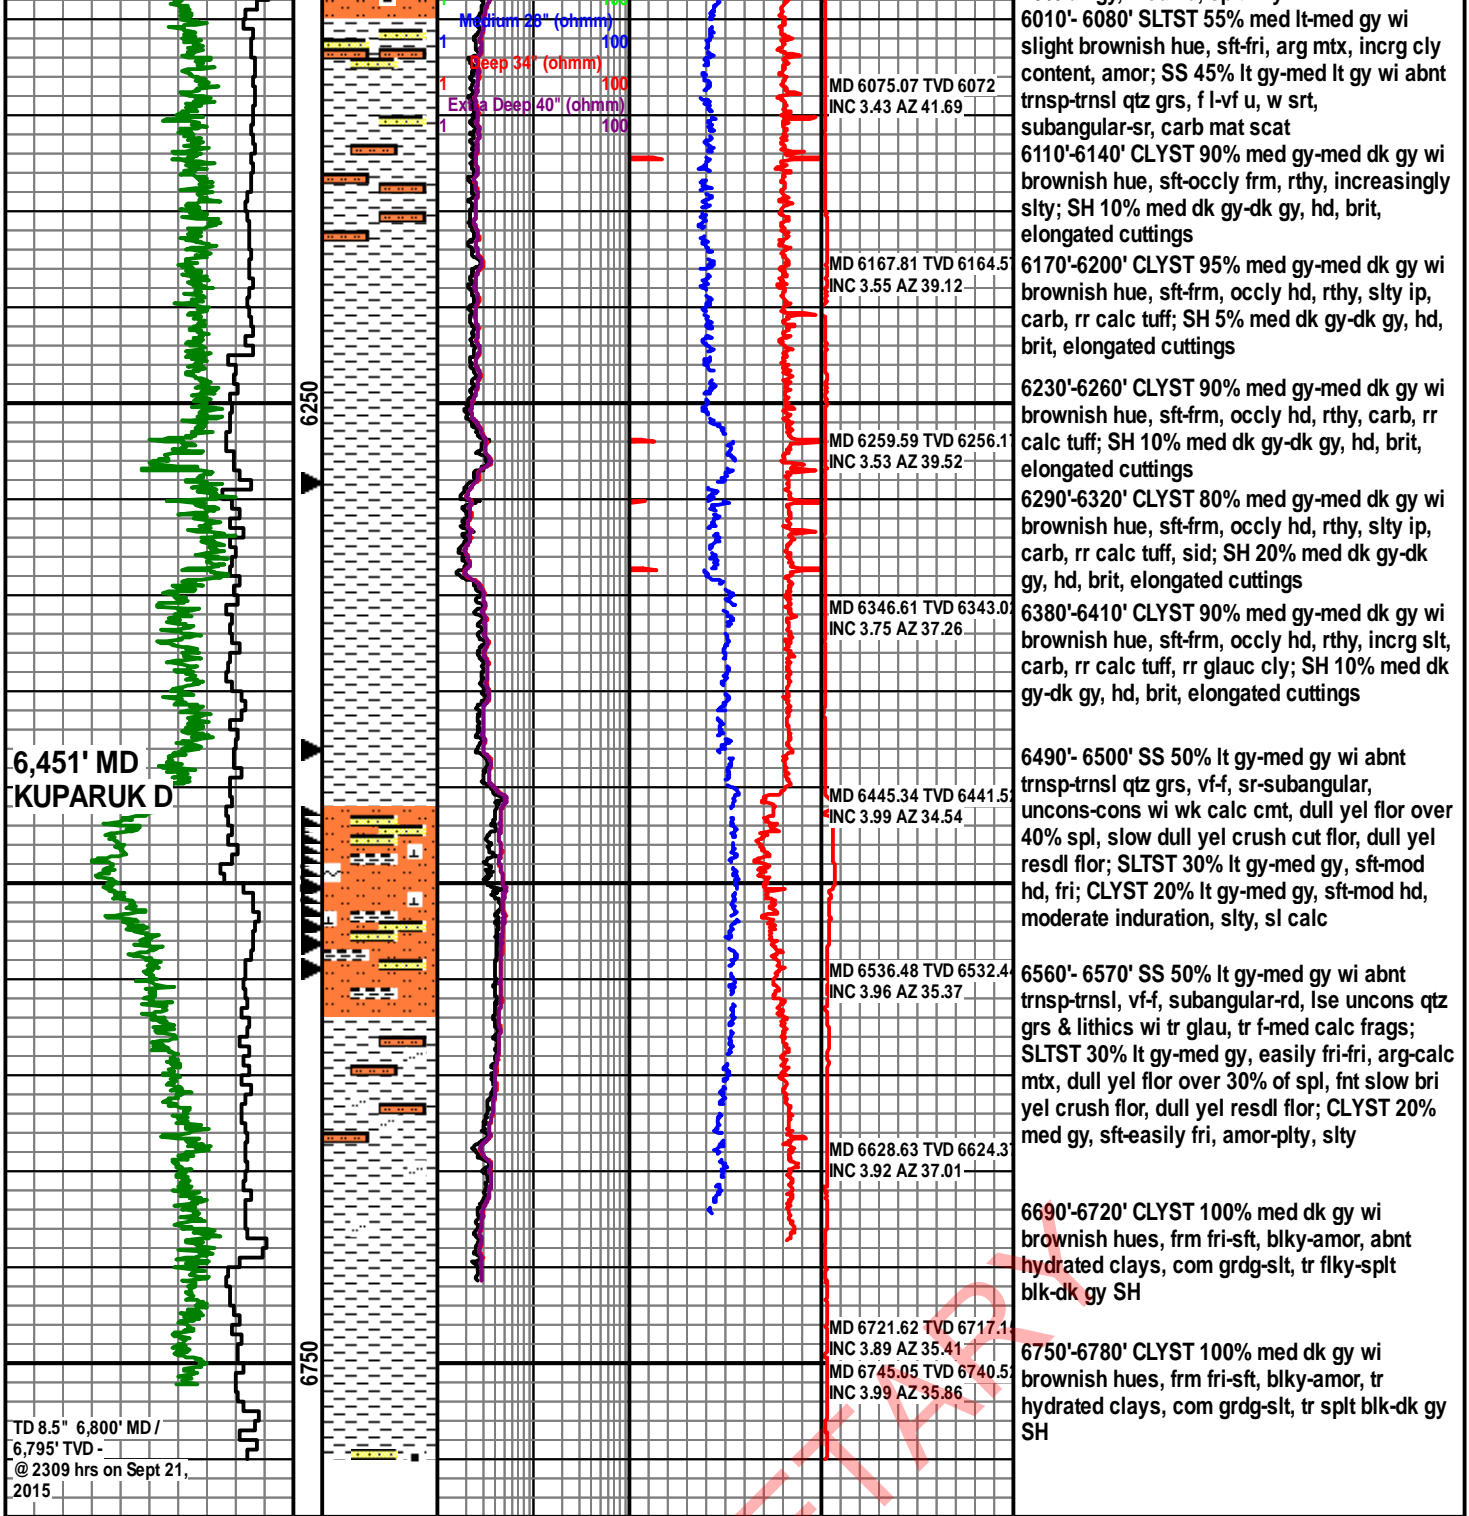 100
Medium 28" (ohmm)
1 100
Deep 34" (ohmm)
1 100
Extra Deep 40" (ohmm)
1 100
6250
6,451' MD
KUPARUK D
6750
TD 8.5" 6,800' MD /
6,795' TVD -
@ 2309 hrs on Sept 21,
2015
MD 6075.07 TVD 6072
INC 3.43 AZ 41.69
MD 6167.81 TVD 6164.57
INC 3.55 AZ 39.12
MD 6259.59 TVD 6256.17
INC 3.53 AZ 39.52
MD 6346.61 TVD 6343.02
INC 3.75 AZ 37.26
MD 6445.34 TVD 6441.52
INC 3.99 AZ 34.54
MD 6536.48 TVD 6532.44
INC 3.96 AZ 35.37
MD 6628.63 TVD 6624.37
INC 3.92 AZ 37.01
MD 6721.62 TVD
INC 3.89 AZ 35.41
MD 6745.05 TVD 6740.52
INC 3.99 AZ 35.86
6010'- 6080' SLTST 55% med lt-med gy wi
slight brownish hue, sft-fri, arg mtx, incrg cly
content, amor; SS 45% lt gy-med lt gy wi abnt
trnsp-trnsl qtz grs, f l-vf u, w srt,
subangular-sr, carb mat scat
6110'-6140' CLYST 90% med gy-med dk gy wi
brownish hue, sft-occly frm, rthy, increasingly
slty; SH 10% med dk gy-dk gy, hd, brit,
elongated cuttings
6170'-6200' CLYST 95% med gy-med dk gy wi
brownish hue, sft-frm, occly hd, rthy, slty ip,
carb, rr calc tuff; SH 5% med dk gy-dk gy, hd,
brit, elongated cuttings
6230'-6260' CLYST 90% med gy-med dk gy wi
brownish hue, sft-frm, occly hd, rthy, carb, rr
calc tuff; SH 10% med dk gy-dk gy, hd, brit,
elongated cuttings
6290'-6320' CLYST 80% med gy-med dk gy wi
brownish hue, sft-frm, occly hd, rthy, slty ip,
carb, rr calc tuff, sid; SH 20% med dk gy-dk
gy, hd, brit, elongated cuttings
6380'-6410' CLYST 90% med gy-med dk gy wi
brownish hue, sft-frm, occly hd, rthy, incrg slt,
carb, rr calc tuff, rr glauc cly; SH 10% med dk
gy-dk gy, hd, brit, elongated cuttings
6490'- 6500' SS 50% lt gy-med gy wi abnt
trnsp-trnsl qtz grs, vf-f, sr-subangular,
uncons-cons wi wk calc cmt, dull yel flor over
40% spl, slow dull yel crush cut flor, dull yel
resdl flor; SLTST 30% lt gy-med gy, sft-mod
hd, fri; CLYST 20% lt gy-med gy, sft-mod hd,
moderate induration, slty, sl calc
6560'- 6570' SS 50% lt gy-med gy wi abnt
trnsp-trnsl, vf-f, subangular-rd, lse uncons qtz
grs & lithics wi tr glau, tr f-med calc frags;
SLTST 30% lt gy-med gy, easily fri-fri, arg-calc
mtx, dull yel flor over 30% of spl, fnt slow bri
yel crush flor, dull yel resdl flor; CLYST 20%
med gy, sft-easily fri, amor-plty, slty
6690'-6720' CLYST 100% med dk gy wi
brownish hues, frm fri-sft, blky-amor, abnt
hydrated clays, com grdg-slt, tr flky-splt
blk-dk gy SH
6750'-6780' CLYST 100% med dk gy wi
brownish hues, frm fri-sft, blky-amor, tr
hydrated clays, com grdg-slt, tr splt blk-dk gy
SH
ETARY